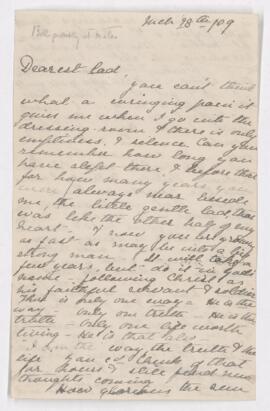 March 28th /09
Dearest lad,
you can't think
what a wringing pain it
gives me when I go into the
dressing-room & there is only
emptiness & silence. Can you
remember how long you
have slept there, & before that
for how many years you
were always near beside
me, the little gentle lad that
was like the other half of my
heart - & now you be growing
as fast as may be into a
strong man - It will take a
few years, but do it in God's
name, following Christ as
his faithful servant & soldier
There is only one way - He is the
way - only one truth - He is the
truth - only one life worth
living - He is that also -
I am the way the truth & the
life you cd think of that
for hours & still find new
thoughts coming
How glorious the sun